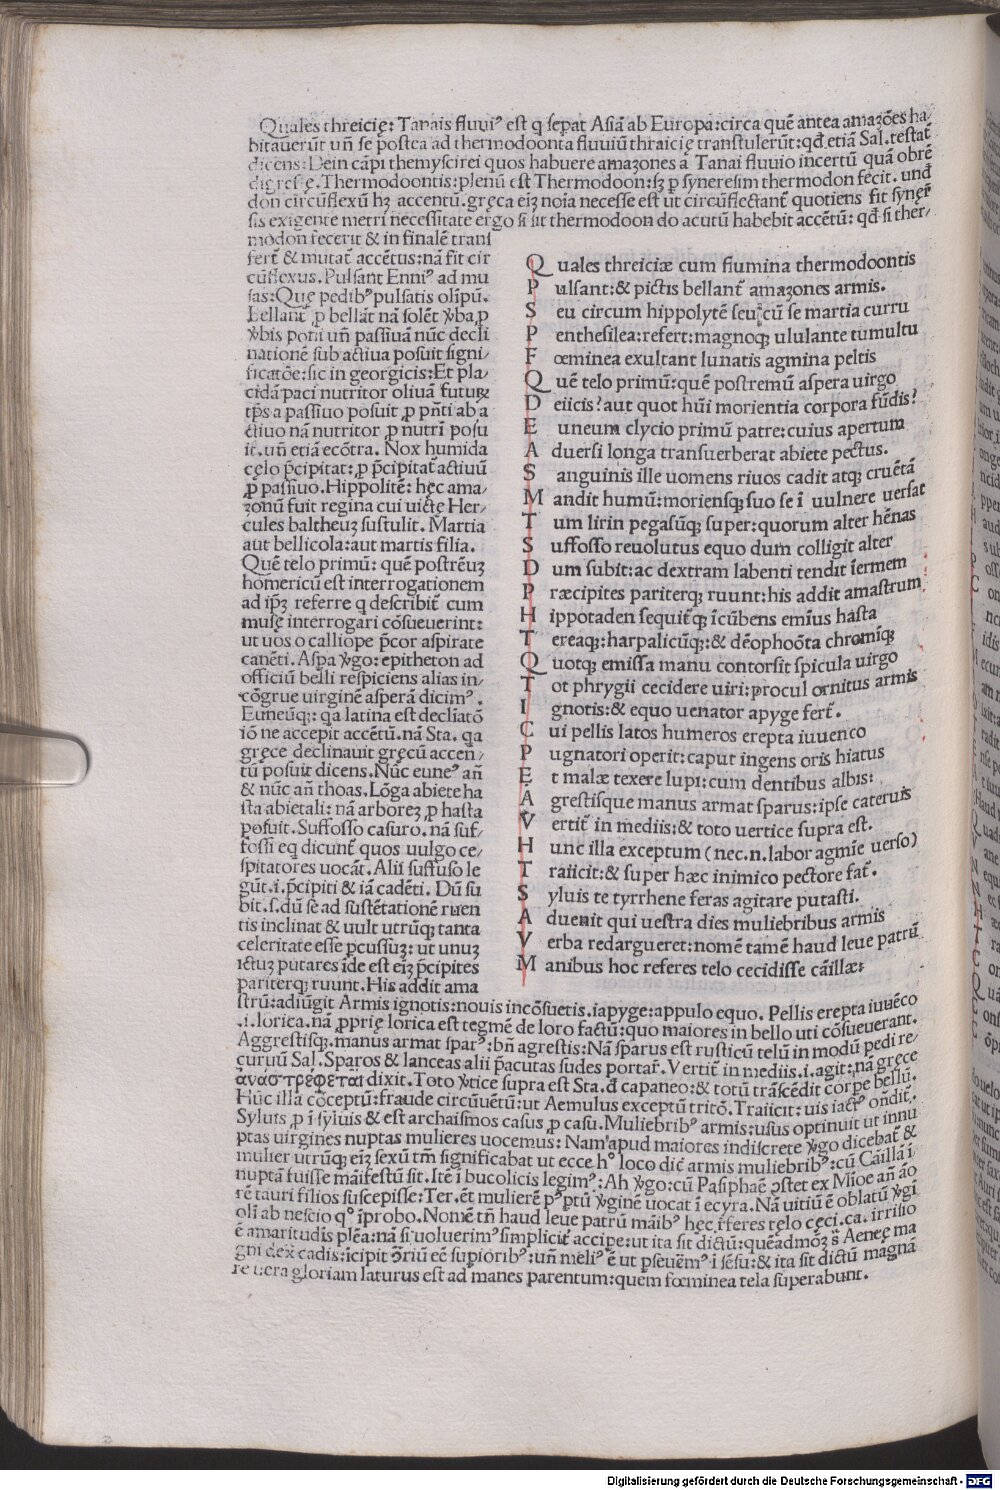 Quales threicię: Tanais fluuiꝰ est q sepat Asiā ab Europa:circa quē antea amazōes ha/
bitauerūt un̄ se postea ad thermodoonta fluuiū thraicię transtulerūt:qđ etiā Sal.testat̄
dicens:Dein cāpi themyscirei quos habuere amazones a Tanai fluuio incertū quā obrē
digresę.Thermodoontis:plenū est Thermodoon:sꝫ p syneresim thermodon fecit. unđ
don circūflexū hꝫ accentū.gręca eiꝫ noīa necesse est ut circūflectant̄ quotiens fit synęr̄
sis exigente metri necessitate ergo si sit thermodoon do acutū habebit accētū: qđ si ther/
modon fecerit & in finalē transf
fert̄ & mutat̄ accētus:nā fit cir
cūflexus. Pulsant Enniꝰ ad mu
sas:Quę pedibꝰ pulsatis olīpū.
Bellant̄ ꝓ bellāt nā solēt ỽba ꝓ
ỽbis poni un̄ passiuā nūc decli
nationē sub actiua posuit signi/
ficatōe:sic in georgicis:Et pla/
cidā paci nutritor oliuā futurꝫ
tp̄s a passiuo posuit ꝓ pn̄ti ab a
ctiuo nā nutritor ꝓ nutri posu
it.un̄ etiā ecōtra. Nox humida
cęlo p̄cipitat: ꝓ p̄cipitat̄ actiuū
ꝓ passiuo. Hippolitē: hęc ama/
zonū fuit regina cui uictę Her/
cules baltheuꝫ sustulit. Martia
aut bellicola:aut martis filia.
Quē telo primū: quē postrēuꝫ
homericū est interrogationem
ad ip̄ꝫ referre q describit̄ cum
musę interrogari cōsueuerint:
ut uos o calliope p̄cor aspirate
canēti. Aspa ỽgo: epitheton ad
officiū belli respiciens alias in/
cōgrue uirginē asperā dicimꝰ.
Euneūqꝫ: qa latina est decliatō
iō ne accepit accētū.nā Sta. qa
gręce declinauit gręcū accen/
tū posuit dicens.Nūc euneꝰ an̄
& nūc an̄ thoas. Lōga abiete ha
sta abietali: nā arborez ꝓ hasta
posuit. Suffosso casuro. nā suf/
fossi eq dicunt̄ quos uulgo ce/
spitatores uocāt. Alii suffuso le
gūt.i.p̄cipiti & iā cadēti. Dū su
bit.s.dū se ad sustētationē ruen
tis inclinat & uult utrūqꝫ tanta
celeritate esse pcussuꝫ: ut unuꝫ
ictuꝫ putares īde est eiꝫ p̄cipites
pariterqꝫ ruunt. His addit ama
Quales threiciæ cum flumina thermodoontis
Pulsant:& pictis bellant̄ amazones armis.
Seu circum hippolytē seu cū se martia curru
Penthesilea:refert:magnoqꝫ ululante tumultu
Fœminea exultant lunatis agmina peltis
Quē telo primū:quē postremū aspera uirgo
Deiicis?aut quot hūi morientia corpora fūdis?
Euneum clycio primū patre:cuius apertum
Aduersi longa transuerberat abiete pectus.
Sanguinis ille uomens riuos cadit atqꝫ cruētā
Mandit humū:moriensqꝫ suo se ī uulnere uersat
Tum lirin pegasūqꝫ super:quorum alter hēnas
Suffosso reuolutus equo dum colligit alter
Dum subit:ac dextram labenti tendit īermem
Præcipites pariterqꝫ ruunt:his addit amastrum
Hippotaden sequit̄qꝫ īcūbens emīus hasta
Tereaqꝫ:harpalicūqꝫ:& dēophoōta chromīqꝫ
Quotqꝫ emissa manu contorsit spicula uirgo
Tot phrygii cecidere uiri:procul ornitus armis
Ignotis:& equo uenator apyge fert̄.
Cui pellis latos humeros erepta iuuenco
Pugnatori operit:caput ingens oris hiatus
Et malæ texere lupi:cum dentibus albis:
Agrestisque manus armat sparus:ipse cateruis
Vertit̄ in mediis:& toto uertice supra est.
Hunc illa exceptum (nec.n.labor agmīe uerso)
Traiicit:& super hæc inimico pectore fat̄.
Syluis te tyrrhene feras agitare putasti.
Aduenit qui uestra dies muliebribus armis
Verba redargueret:nomē tamē haud leue patrū
Manibus hoc referes telo cecidisse cāillæ:
strū:adiūgit Armis ignotis:nouis incōsuetis.iapyge:appulo equo. Pellis erepta iuuēco
.i.lorica.nā ꝓprię lorica est tegmē de loro factū:quo maiores in bello uti cōsueuerant.
Aggrestisqꝫ.manus armat sparꝰ:bn̄ agrestis:Nā sparus est rusticū telū in modū pedi re/
curuū Sal.Sparos & lanceas alii p̄acutas sudes portar̄.Vertit̄ in mediis.i.agit:nā gręce
ἀναστρέφεται dixit.Toto ỽtice supra est Sta.đ capaneo:& totū trāscēdit corpe bellū.
Hūc illa cōceptū:fraude circūuētū:ut Aemulus exceptū tritō.Traiicit:uis iacr̄ on̄dit̄.
Syluis ꝓ ī syluis & est archaismos casus ꝓ casu.Muliebribꝰ armis:usus optinuit ut innu
ptas uirgines nuptas mulieres uocemus: Nam apud maiores indiscrete ỽgo dicebat̄ &
mulier utrūqꝫ eiꝫ sexū tm̄ significabat ut ecce hꝰ loco dic̄ armis muliebribꝰ:cū Cāillā ī
nuptā fuisse māifestū sit.Itē ī bucolicis legimꝰ:Ah ỽgo:cū Pasiphaē ↄstet ex Mīoe an̄ āo
rē tauri filios suscepisse:Ter.ēt mulierē pꝰ ptū ỽginē uocat ī ecyra.Nā uitiū ē oblatū ỽgī
oli ab nescio qꝰ īprobo.Nomē tn̄ haud leue patrū māibꝰ hęc r̄feres tęlo cęci.ca.irrisio
ē amaritudīs plēa:nā si uoluerimꝰ simplicit̄ accipe:ut ita sit dictū:quēadmōꝫ s̄ Aeneę ma
gni dextra cadis:icipit ↄ̄riū eē supioribꝰ:un̄ meliꝰ ē ut pseuēmꝰ ī sēsu:& ita sit dictū magnā
re uera gloriam laturus est ad manes parentum:quem fœminea tela superabunt.
Digitalisierung gefördert durch die Deutsche Forschungsgemeinschaft - DFG